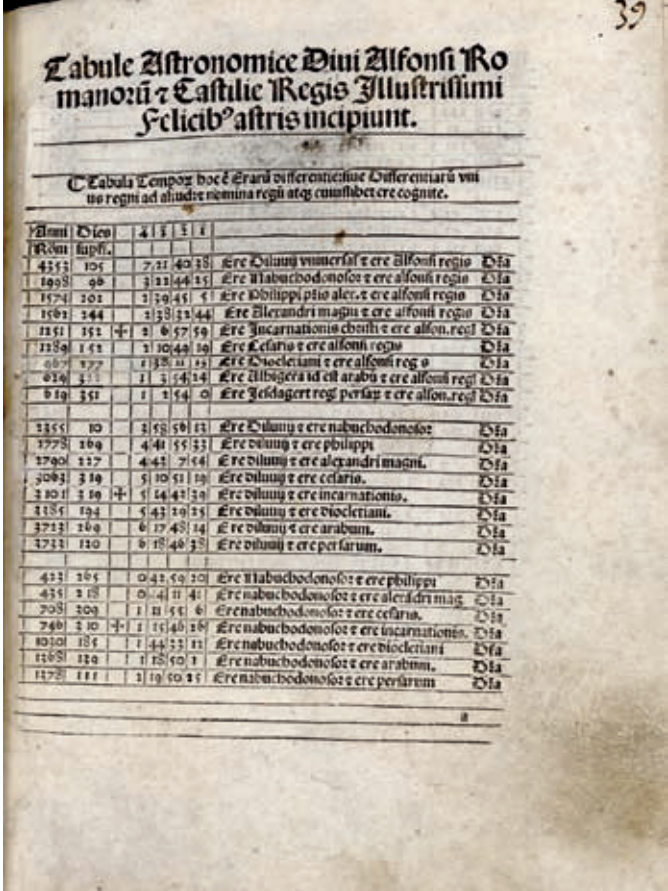 39
Tabule Astronomice Diui Alfonsi Ro
manorū ⁊ Castilie Regis Illustrissimi
Felicibꝰ astris incipiunt.
Tabula Tempoꝝ hoc ē Erarū differentie: siue Differentiarū vni
us regni ad aliud: ⁊ nomina regū atqꝫ cuiuslibet ere cognite.
Anni Dies 4 3 2 1
Rōm supfl.
4353 105 7 21 40 38 Ere Diluuij vniuersal ⁊ ere Alfonsi regis Dr̄a
1998 96 3 22 44 25 Ere Nabuchodonosoꝛ ⁊ ere alfonsi regis Dr̄a
1574 202 2 39 45 5 Ere Philippi ⁊ ere alfonsi regis Dr̄a
1562 244 2 38 32 44 Ere Alexandri magni ⁊ ere alfonsi regis Dr̄a
1251 152 + 2 6 57 59 Ere Incarnationis christi ⁊ ere alfon. reg Dr̄a
1289 152 2 10 49 19 Ere Cesaris ⁊ ere alfonsi regis Dr̄a
277 1 38 11 Ere Diocletiani ⁊ ere alfonsi reg s Dr̄a
629 1 3 54 24 Ere Albigera id est arabū ⁊ ere alfonsi reg Dr̄a
619 351 1 2 54 0 Ere Jesdagert reg persaꝝ ⁊ ere alfon. reg Dr̄a
2355 10 2 58 56 13 Ere Diluuij ⁊ ere nabuchodonosoꝛ Dr̄a
2778 269 4 41 55 33 Ere diluuij ⁊ ere philippi Dr̄a
2790 227 4 43 7 54 Ere diluuij ⁊ ere alexandri magni. Dr̄a
3063 319 5 10 51 19 Ere diluuij ⁊ ere cesaris. Dr̄a
3101 319 + 5 14 42 39 Ere diluuij ⁊ ere incarnationis. Dr̄a
3385 194 5 43 29 25 Ere diluuij ⁊ ere diocletiani. Dr̄a
3723 269 6 17 48 14 Ere diluuij ⁊ ere arabum. Dr̄a
3733 120 6 18 46 38 Ere diluuij ⁊ ere persarum. Dr̄a
423 265 0 42 59 20 Ere Nabuchodonosoꝛ ⁊ ere philippi Dr̄a
435 218 0 4 11 41 Ere nabuchodonosoꝛ ⁊ ere alexādri mag Dr̄a
708 209 1 11 55 6 Ere nabuchodonosoꝛ ⁊ ere cesaris. Dr̄a
746 210 + 1 15 46 26 Ere nabuchodonosoꝛ ⁊ ere incarnationis. Dr̄a
1030 185 1 44 33 12 Ere nabuchodonosoꝛ ⁊ ere diocletiani Dr̄a
1368 139 2 18 50 1 Ere nabuchodonosoꝛ ⁊ ere arabum. Dr̄a
1378 111 2 19 50 25 Ere nabuchodonosoꝛ ⁊ ere persarum Dr̄a
a